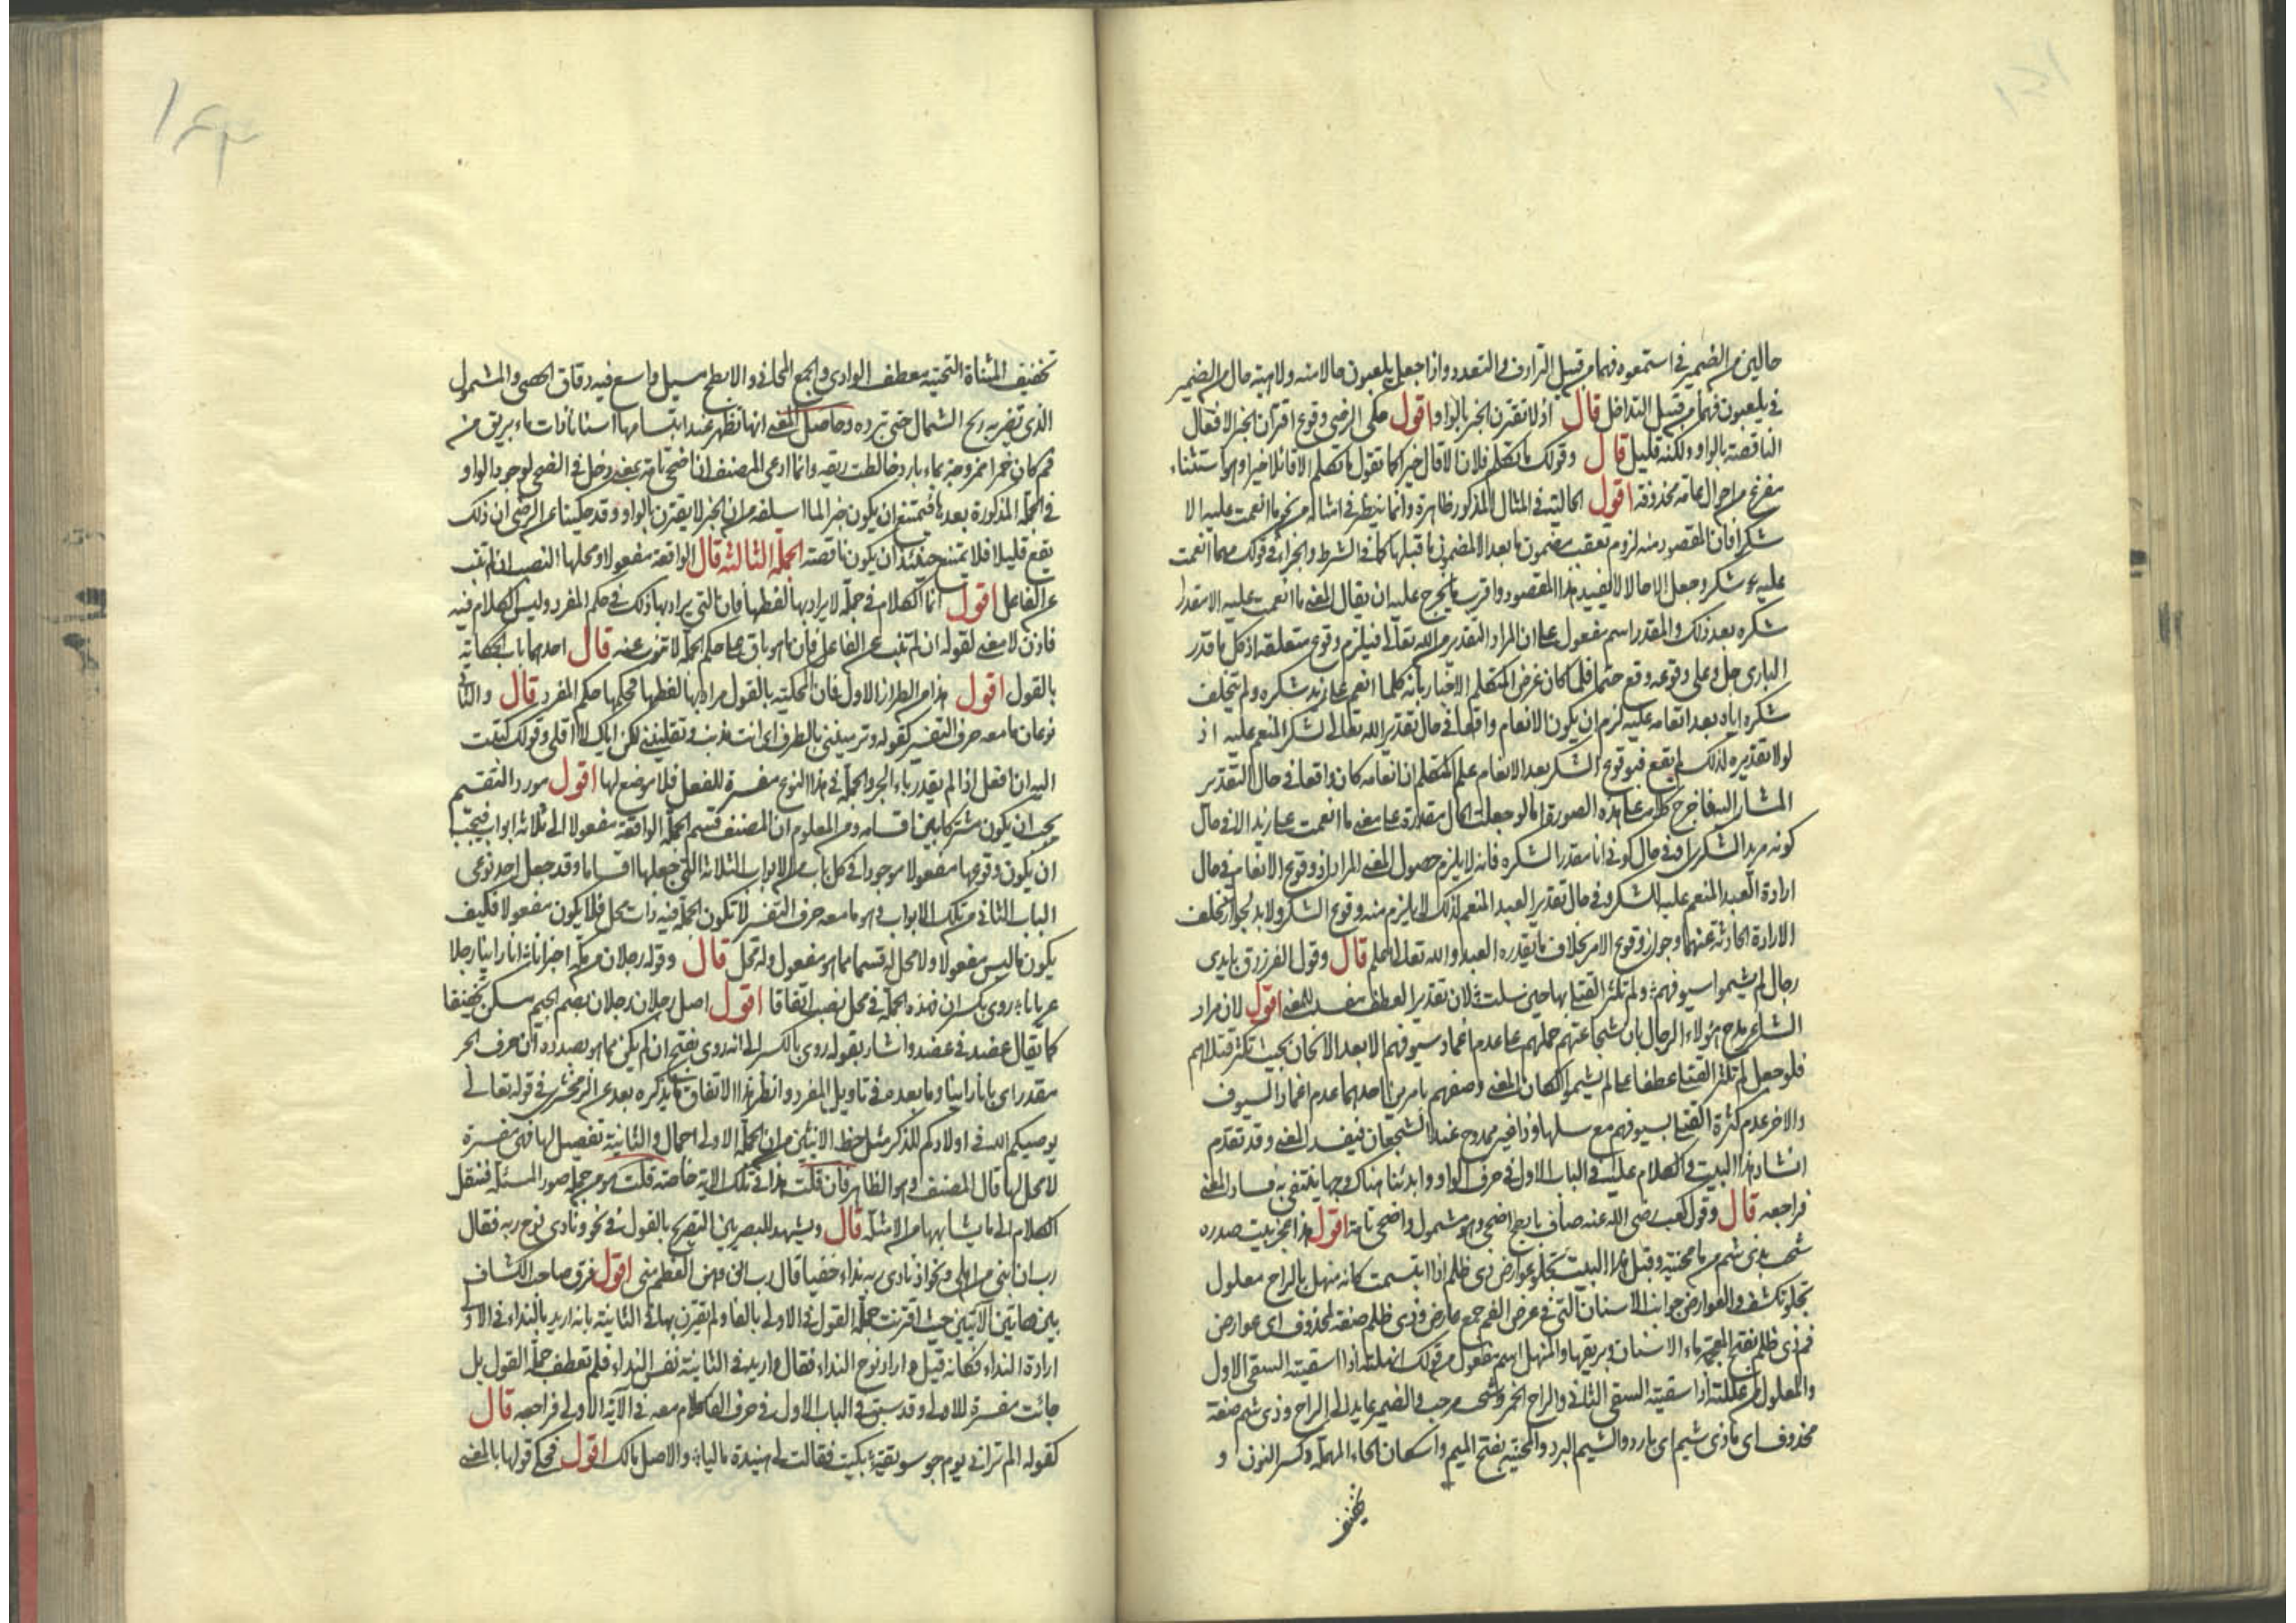 حالين من الضمير في استمعوه فهما من قبيل الترادف والتعدد واذا جعل يلعبون حالا منه ولاهية حال من الضمير
في يلعبون فهما من قبيل التداخل قال اذ لا تقترن الخبر بالواو اقول حكى الرضي وقوع اقتران الخبر الافعال
الناقصة بالواو ولكنه قليل قال وقولك ما تكلم فلان الا قال خيرا كما تقول ما تكلم الا قائلا خيرا وهو استثناء
مفرغ من احوال عامة محذوفة اقول الحالية في المثال المذكور ظاهرة وانما ينظر في امثاله من نحو ما انعمت عليه الا
شكر فان المقصود منه لزوم تعقب مضمون ما بعد الا لمضمون ما قبلها كما في الشرط والجزاء في قولك مهما انعمت
عليه شكر وجعل الا حالا لا يفيد هذا المقصود واقرب ما يخرج عليه ان يقال المعنى ما انعمت عليه الا مقدرا
شكره بعد ذلك والمقدر اسم مفعول على ان المراد التقدير من الله تعالى فيلزم وقوع متعلقه اذ كل ما قدر
الباري جل وعلى وقوعه وقع حتما فلما كان غرض المتكلم الاخبار بانه كلما انعم على زيد شكره ولم يتخلف
شكره اياه بعد انعامه عليه لزم ان يكون الانعام واقعا في حال تقدير الله تعالى لشكر المنعم عليه اذ
لولا تقديره لذلك لم يقع فبوقوع الشكر بعد الانعام علم المتكلم ان انعامه كان واقعا في حال التقدير
المشار اليه فاخرج كلامه على هذه الصورة اما لو جعلت الحال مقدرة على معنى ما انعمت على زيد الا في حال
كونه مريد الشكر لي في حال كوني انا مقدر الشكره فانه لا يلزم حصول المعنى المراد اذ وقوع الانعام في حال
ارادة العبد المنعم عليه للشكر وفي حال تقدير العبد المنعم لذلك لا يلزم منه وقوع الشكر ولا بد لجواز تخلف
الارادة الحادثة عنهما وجواز وقوع الامر بخلاف ما يقدره العبد والله تعالى اعلم قال وقول الفرزدق بايدي
رجال لم يشيموا سيوفهم ولم تكثر القتلى بها حين سلت لان تقدير العطف مفسد للمعنى اقول لان مراد
الشاعر مدح هؤلاء الرجال بان شجاعتهم حملهم على عدم اغماد سيوفهم الا بعد الاثخان بحيث تكثر قتلاهم
فلو جعل لم تكثر القتلى عطفا على لم يشيموا لكان المعنى وصفهم بامرين احدهما عدم اغماد السيوف
والاخر عدم كثرة القتلى بسيوفهم مع سلها وذا غير ممدوح عند الشجعان فيفسد المعنى وقد تقدم
انشاد هذا البيت والكلام عليه في الباب الاول في حرف الواو وابدينا هناك وجها ينتفي به فساد المعنى
فراجعه قال وقول كعب رضي الله عنه صاف بابطح اضحى وهو مشمول واضحى تامة اقول هذا عجز بيت صدره
شجت بذي شبم من ما محنية وقبل هذا البيت تجلو عوارض ذي ظلم اذا ابتسمت كانه منهل بالراح معلول
تجلو تكشف والعوارض جوانب الاسنان التي في عرض الفم جمع عارض وذي ظلم صفة لمحذوف اي عوارض
فم ذي ظلم بفتح المعجمة ماء الاسنان وبريقها والمنهل اسم مفعول من قولك انهلته اذا اسقيته السقي الاول
والمعلول من عللته اذا سقيته السقي الثاني والراح الخمر وشجت مزجت والضمير عايد الى الراح وذي شبم صفة
محذوف اي ماء ذي شبم اي بارد والشبم البرد والمحنية بفتح الميم واسكان الحاء المهملة وكسر النون و
تخفيف
تخفيف المثناة التحتية معطف الوادي والجمع المحاني والابطح مسيل واسع فيه دقاق الحصى والمشمول
الذي تضربه ريح الشمال حتى تبرده وحاصل المعنى انها تظهر عند ابتسامها اسنانا ذات ماء وبريق من
فم كان خمرا ممزوجة بماء بارد خالطت ريقه وانما ادعى المصنف ان اضحى تامة بمعنى دخل في الضحى لوجود الواو
في الجملة المذكورة بعدها فيمتنع ان يكون خبرا لما اسلفه من ان الخبر لا يقترن بالواو وقد حكينا عن الرضي ان ذلك
يقع قليلا فلا يمتنع حينئذ ان يكون ناقصة الجملة الثالثة قال الواقعة مفعولا ومحلها النصب ان لم تنب
عن الفاعل اقول انما الكلام في جملة لا يراد بها لفظها فان التي يراد بها ذلك في حكم المفرد وليس الكلام فيه
فاذن لا معنى لقوله ان لم تنب عن الفاعل فان ما هو باق على حكم الجملة لا تنوب عنه قال احدها باب الحكاية
بالقول اقول هذا من الطراز الاول فان المحكية بالقول مراد بها لفظها فحكمها حكم المفرد قال والثاني
نوعان ما معه حرف التفسير كقوله وترمينني بالطرف اي انت مذنب وتقلينني لكن اياك لا اقلي وقولك كتبت
اليه ان افعل اذا لم يقدر باء الجر والجملة في هذا النوع مفسرة للفعل فلا موضع لها اقول مورد التقسيم
يجب ان يكون مشتركا بين اقسامه ومن المعلوم ان المصنف قسم الجملة الواقعة مفعولا الى ثلاثة ابواب فيجب
ان يكون وقوعها مفعولا موجودا في كل باب من الابواب الثلاثة التي جعلها اقساما وقد جعل احد نوعي
الباب الثاني من تلك الابواب وهو ما معه حرف التفسير لا تكون الجملة فيه ذات محل فلا يكون مفعولا فكيف
يكون ما ليس مفعولا ولا محل له قسما مما هو مفعول وله محل قال وقوله رجلان من مكة اخبرانا انا راينا رجلا
عريانا روي بكسر ان فهذه الجملة في محل نصب اتفاقا اقول اصل رجلان رجلان بضم الجيم سكن تخفيفا
كما يقال عضد في عضد واشار بقوله روي بالكسر الى انه روي بفتح ان لم يكن مما هو بصدده لان حرف الجر
مقدر اي بانا راينا وما بعده في تاويل المفرد وانظر هذا الاتفاق بما يذكره بعد عن الزمخشري في قوله تعالى
يوصيكم الله في اولادكم للذكر مثل حظ الانثيين من ان الجملة الاولى اجمال والثانية تفصيل لها فهي مفسرة
لا محل لها قال المصنف وهو الظاهر فان قلت هذا في تلك الاية خاصة قلت هو من جملة صور المسئلة فننقل
الكلام الى ما يشابهها من الامثلة قال ويشهد للبصريين التصريح بالقول في نحو ونادى نوح ربه فقال
رب ان ابني من اهلي ونحو اذ نادى ربه نداء خفيا قال رب اني وهن العظم مني اقول فرق صاحب الكشاف
بين هاتين الآيتين حيث اقترنت جملة القول في الاولى بالفا ولم يقترن بها في الثانية بانه اريد بالنداء في الاولى
ارادة النداء فكانه قيل واراد نوح النداء فقال واريد في الثانية نفس النداء فلم تعطف جملة القول بل
جاءت مفسرة للاولى وقد سبق في الباب الاول في حرف الفا كلام معه في الآية الاولى فراجعه قال
كقوله الم تراني يوم جو سويقة بكيت فقالت لي هنيدة ماليا والاصل مالك اقول فحكى قولها بالمعنى